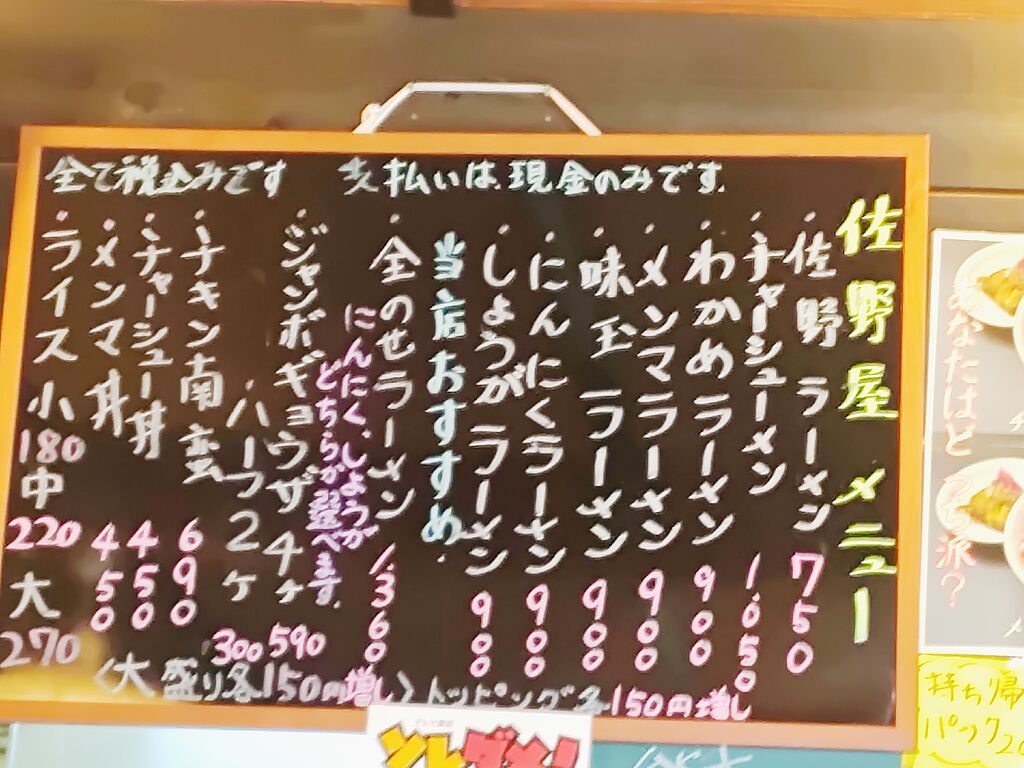 全て税込みです 支払いは、現金のみです。
佐野屋 メニュー
・佐野ラーメン 750
・チャーシューメン 1,050
・わかめラーメン 900
・メンマラーメン 900
・味玉ラーメン 900
・にんにくラーメン 900
・しょうがラーメン 900
当店おすすめ。
・全のせラーメン 1,360
にんにく、しょうが
どちらか選べます。
・ジャンボギョウザ4ケ 590
・ハーフ2ケ 300
・チキン南蛮 690
・チャーシュー丼 450
・メンマ丼 450
・ライス 小 180 中 220 大 270
〈大盛り各150円増し〉トッピング各150円増し
あなたはどっち派?
持ち帰
パック20